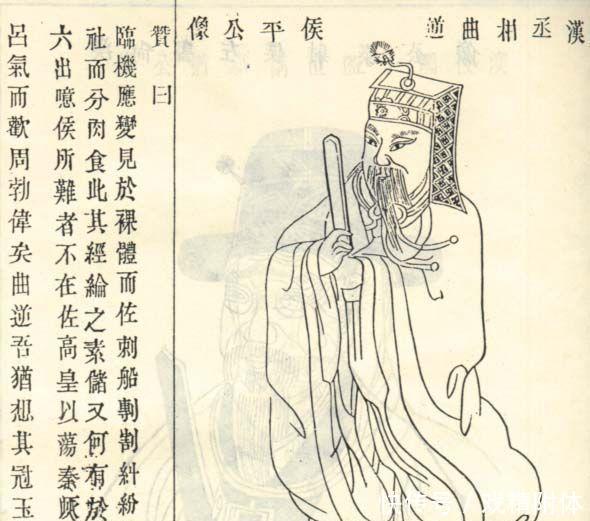 漢丞相曲逆侯平公像
贊曰
臨機應變見於裸體而佐刺船剸割糾紛
社而分肉食此其經綸之素儲又何有於
六出噫侯所難者不在佐高皇以蕩秦
呂氣而歡周勃偉矣曲逆吾猶想其冠玉
快传号/戏精附体